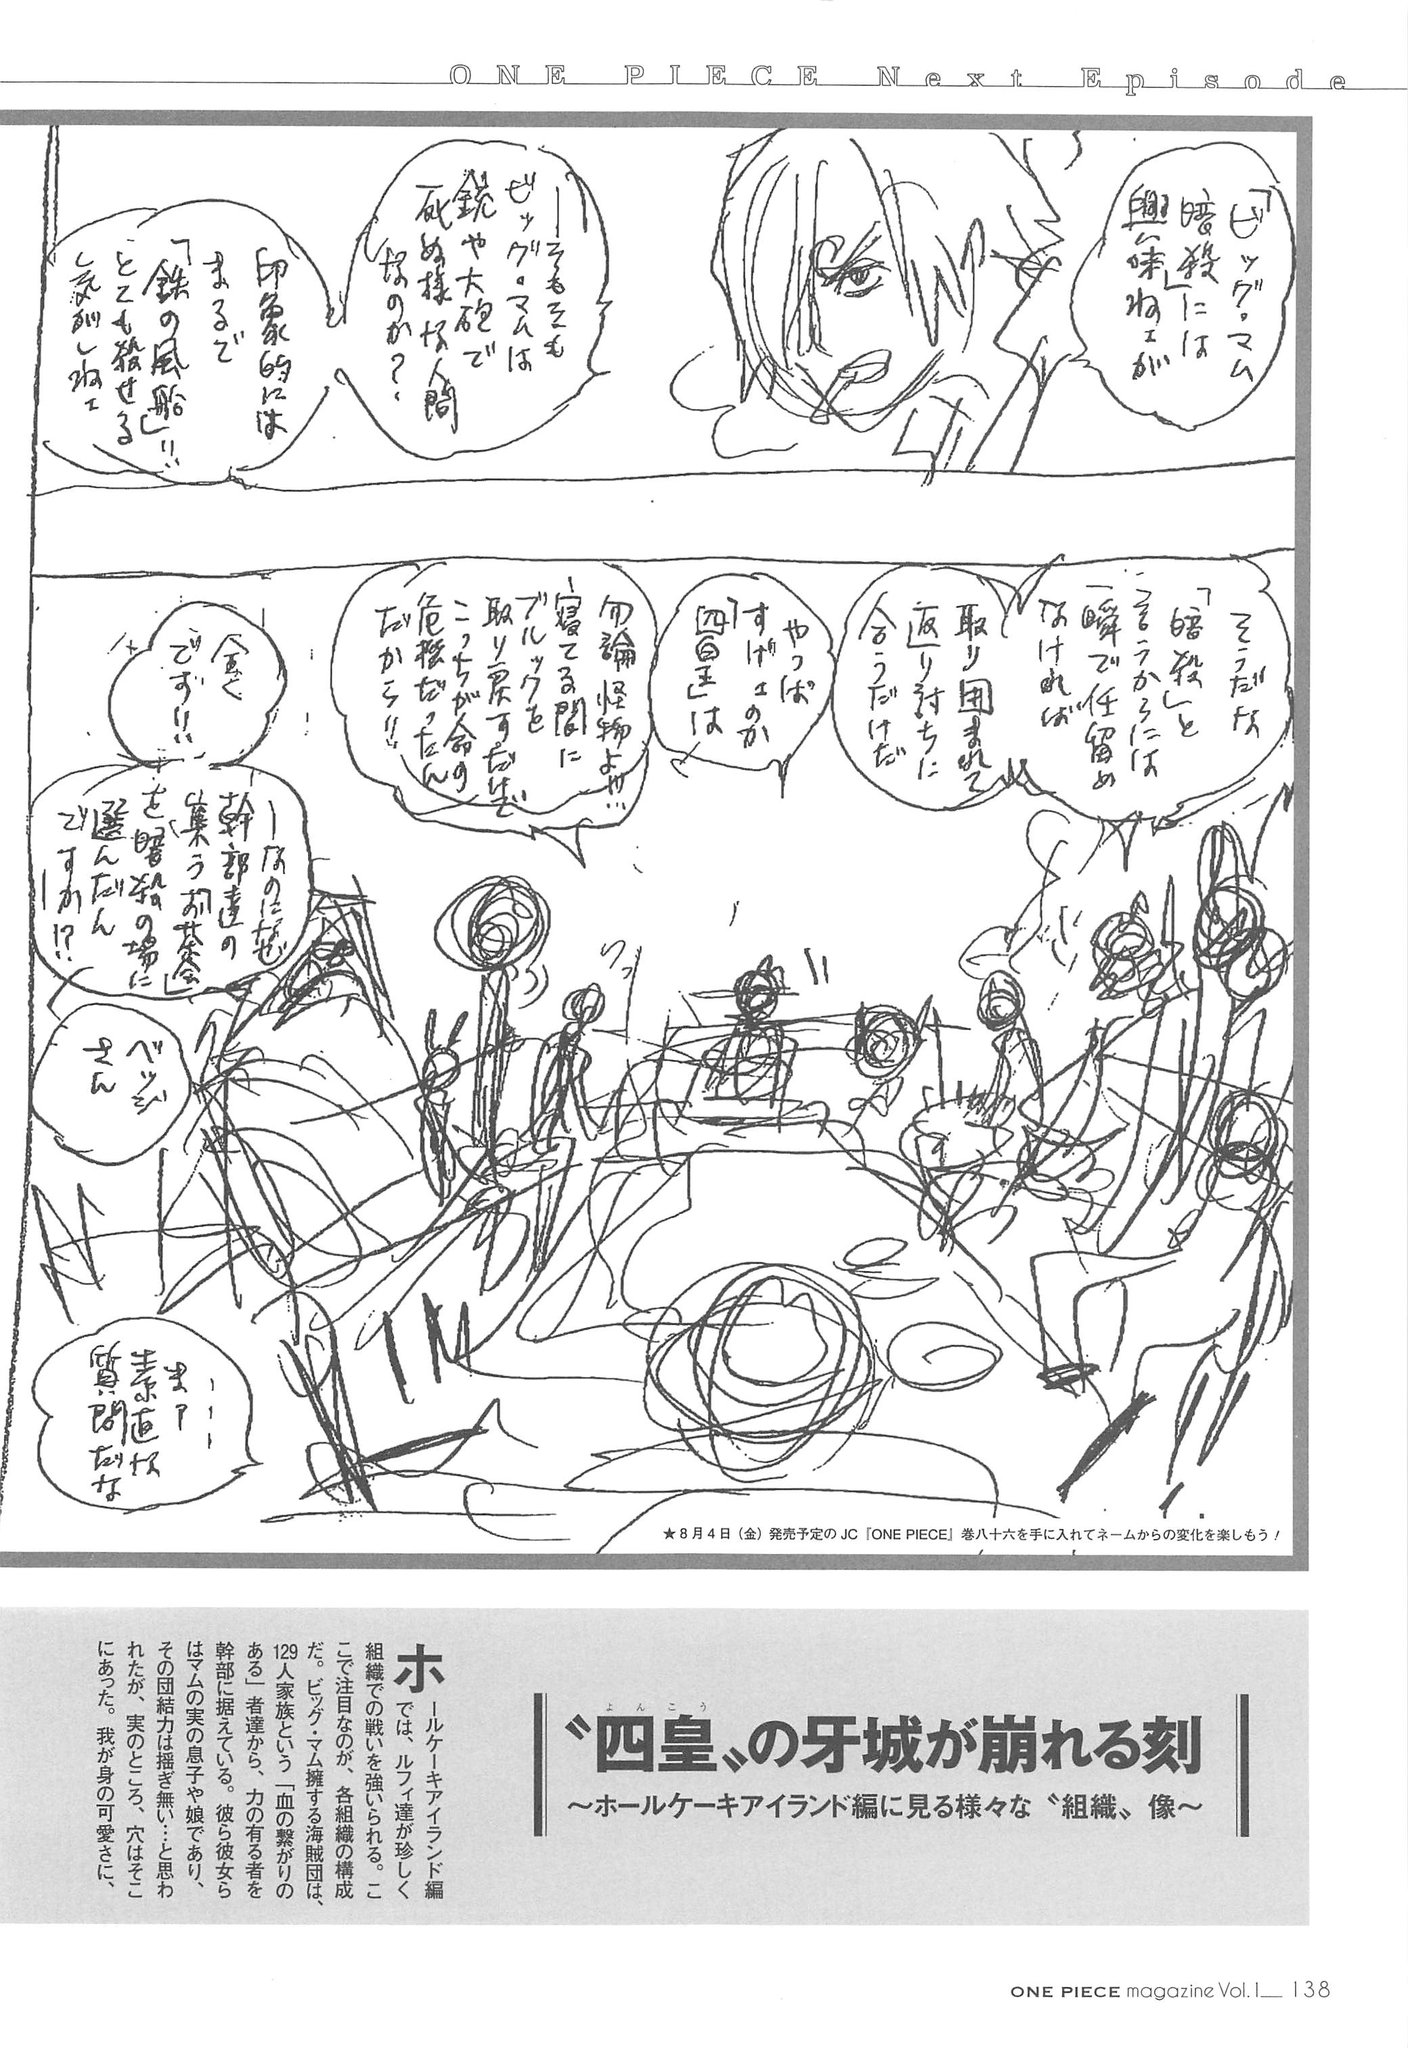 ONE PIECE Next Episode
「ビッグ・マム
暗殺」には
興味ねェが
―そもそも
ビッグ・マムは
銃や大砲で
死ぬ様な人間
なのか?
印象的には
まるで
「鉄の風船」!!
とても殺せる
気がしねェ
そうだな
「暗殺」と
言うからには
一瞬で仕留め
なければ
取り囲まれて
返り討ちに
合うだけだ
やっぱ
すげェのか
「四皇」は
勿論怪物よ!!!
―寝てる間に
ブルックを
取り戻すだけで
こっちが命の
危機だったん
だから!!
全く
です!!!
―なのになぜ
幹部達の
集う「お茶会」
を暗殺の場に
選んだん
ですか―!?
ベッジ
さん
―――
まァ
素直な
質問だな
★8月4日(金)発売予定のJC『ONE PIECE』巻八十六を手に入れてネームからの変化を楽しもう!
よんこう
〝四皇〟の牙城が崩れる刻
～ホールケーキアイランド編に見る様々な〝組織〟像～
ホールケーキアイランド編
では、ルフィ達が珍しく
組織での戦いを強いられる。こ
こで注目なのが、各組織の構成
だ。ビッグ・マム擁する海賊団は、
129人家族という「血の繋がりの
ある」者達から、力の有る者を
幹部に据えている。彼ら彼女ら
はマムの実の息子や娘であり、
その団結力は揺ぎ無い…と思わ
れたが、実のところ、穴はそこ
にあった。我が身の可愛さに、
ONE PIECE magazine Vol.1__ 138